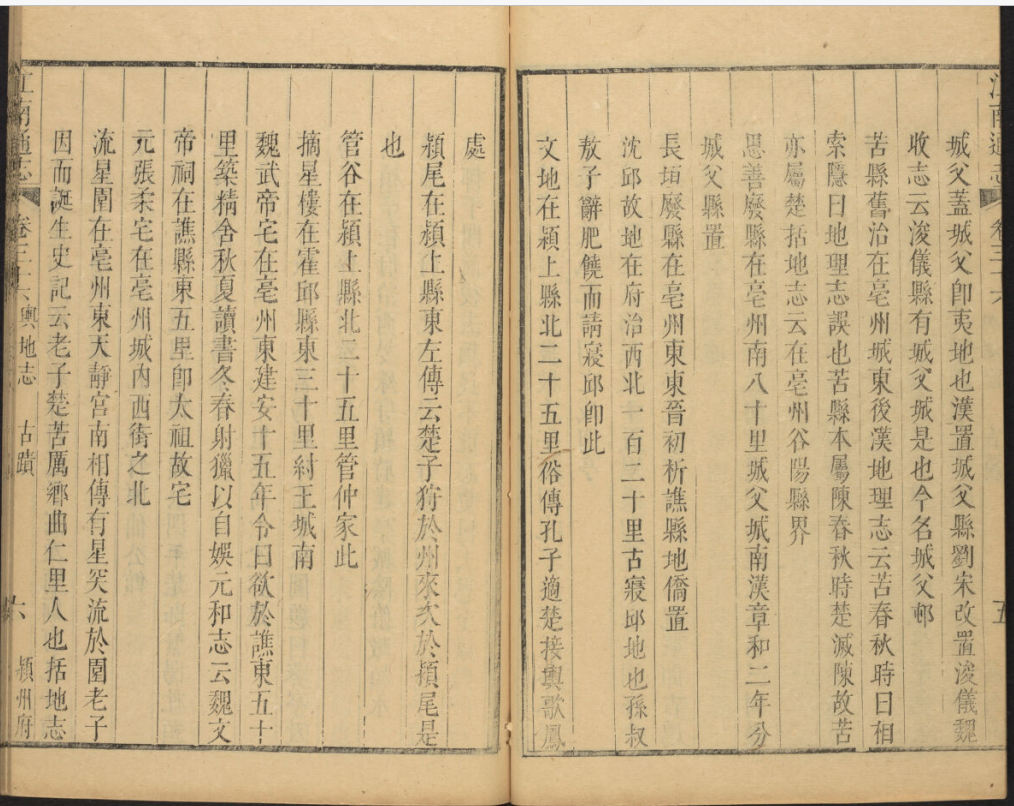 江南通志 卷三十六 五
城父蓋城父卽夷地也漢置城父縣劉宋改置浚儀魏
收志云浚儀縣有城父城是也今名城父邨
苦縣舊治在亳州城東後漢地理志云苦春秋時曰相
索隱曰地理志誤也苦縣本屬陳春秋時楚滅陳故苦
亦屬楚括地志云在亳州谷陽縣界
思善廢縣在亳州南八十里城父城南漢章和二年分
城父縣置
長垣廢縣在亳州東東晉初析譙縣地僑置
沈邱故地在府治西北一百二十里古寢邱地也孫叔
敖子辭肥饒而請寢邱卽此
文地在潁上縣北二十五里俗傳孔子適楚接輿歌鳳
處
潁尾在潁上縣東左傳云楚子狩於州來次於潁尾是
也
管谷在潁上縣北二十五里管仲家此
摘星樓在霍邱縣東三十里紂王城南
魏武帝宅在亳州東建安十五年令曰欲於譙東五十
里築精舍秋夏讀書冬春射獵以自娛元和志云魏文
帝祠在譙縣東五里卽太祖故宅
元張柔宅在亳州城內西街之北
流星園在亳州東天靜宮南相傳有星突流於園老子
因而誕生史記云老子楚苦厲鄉曲仁里人也括地志
江南通志 卷三十六 輿地志 古蹟 六 潁州府